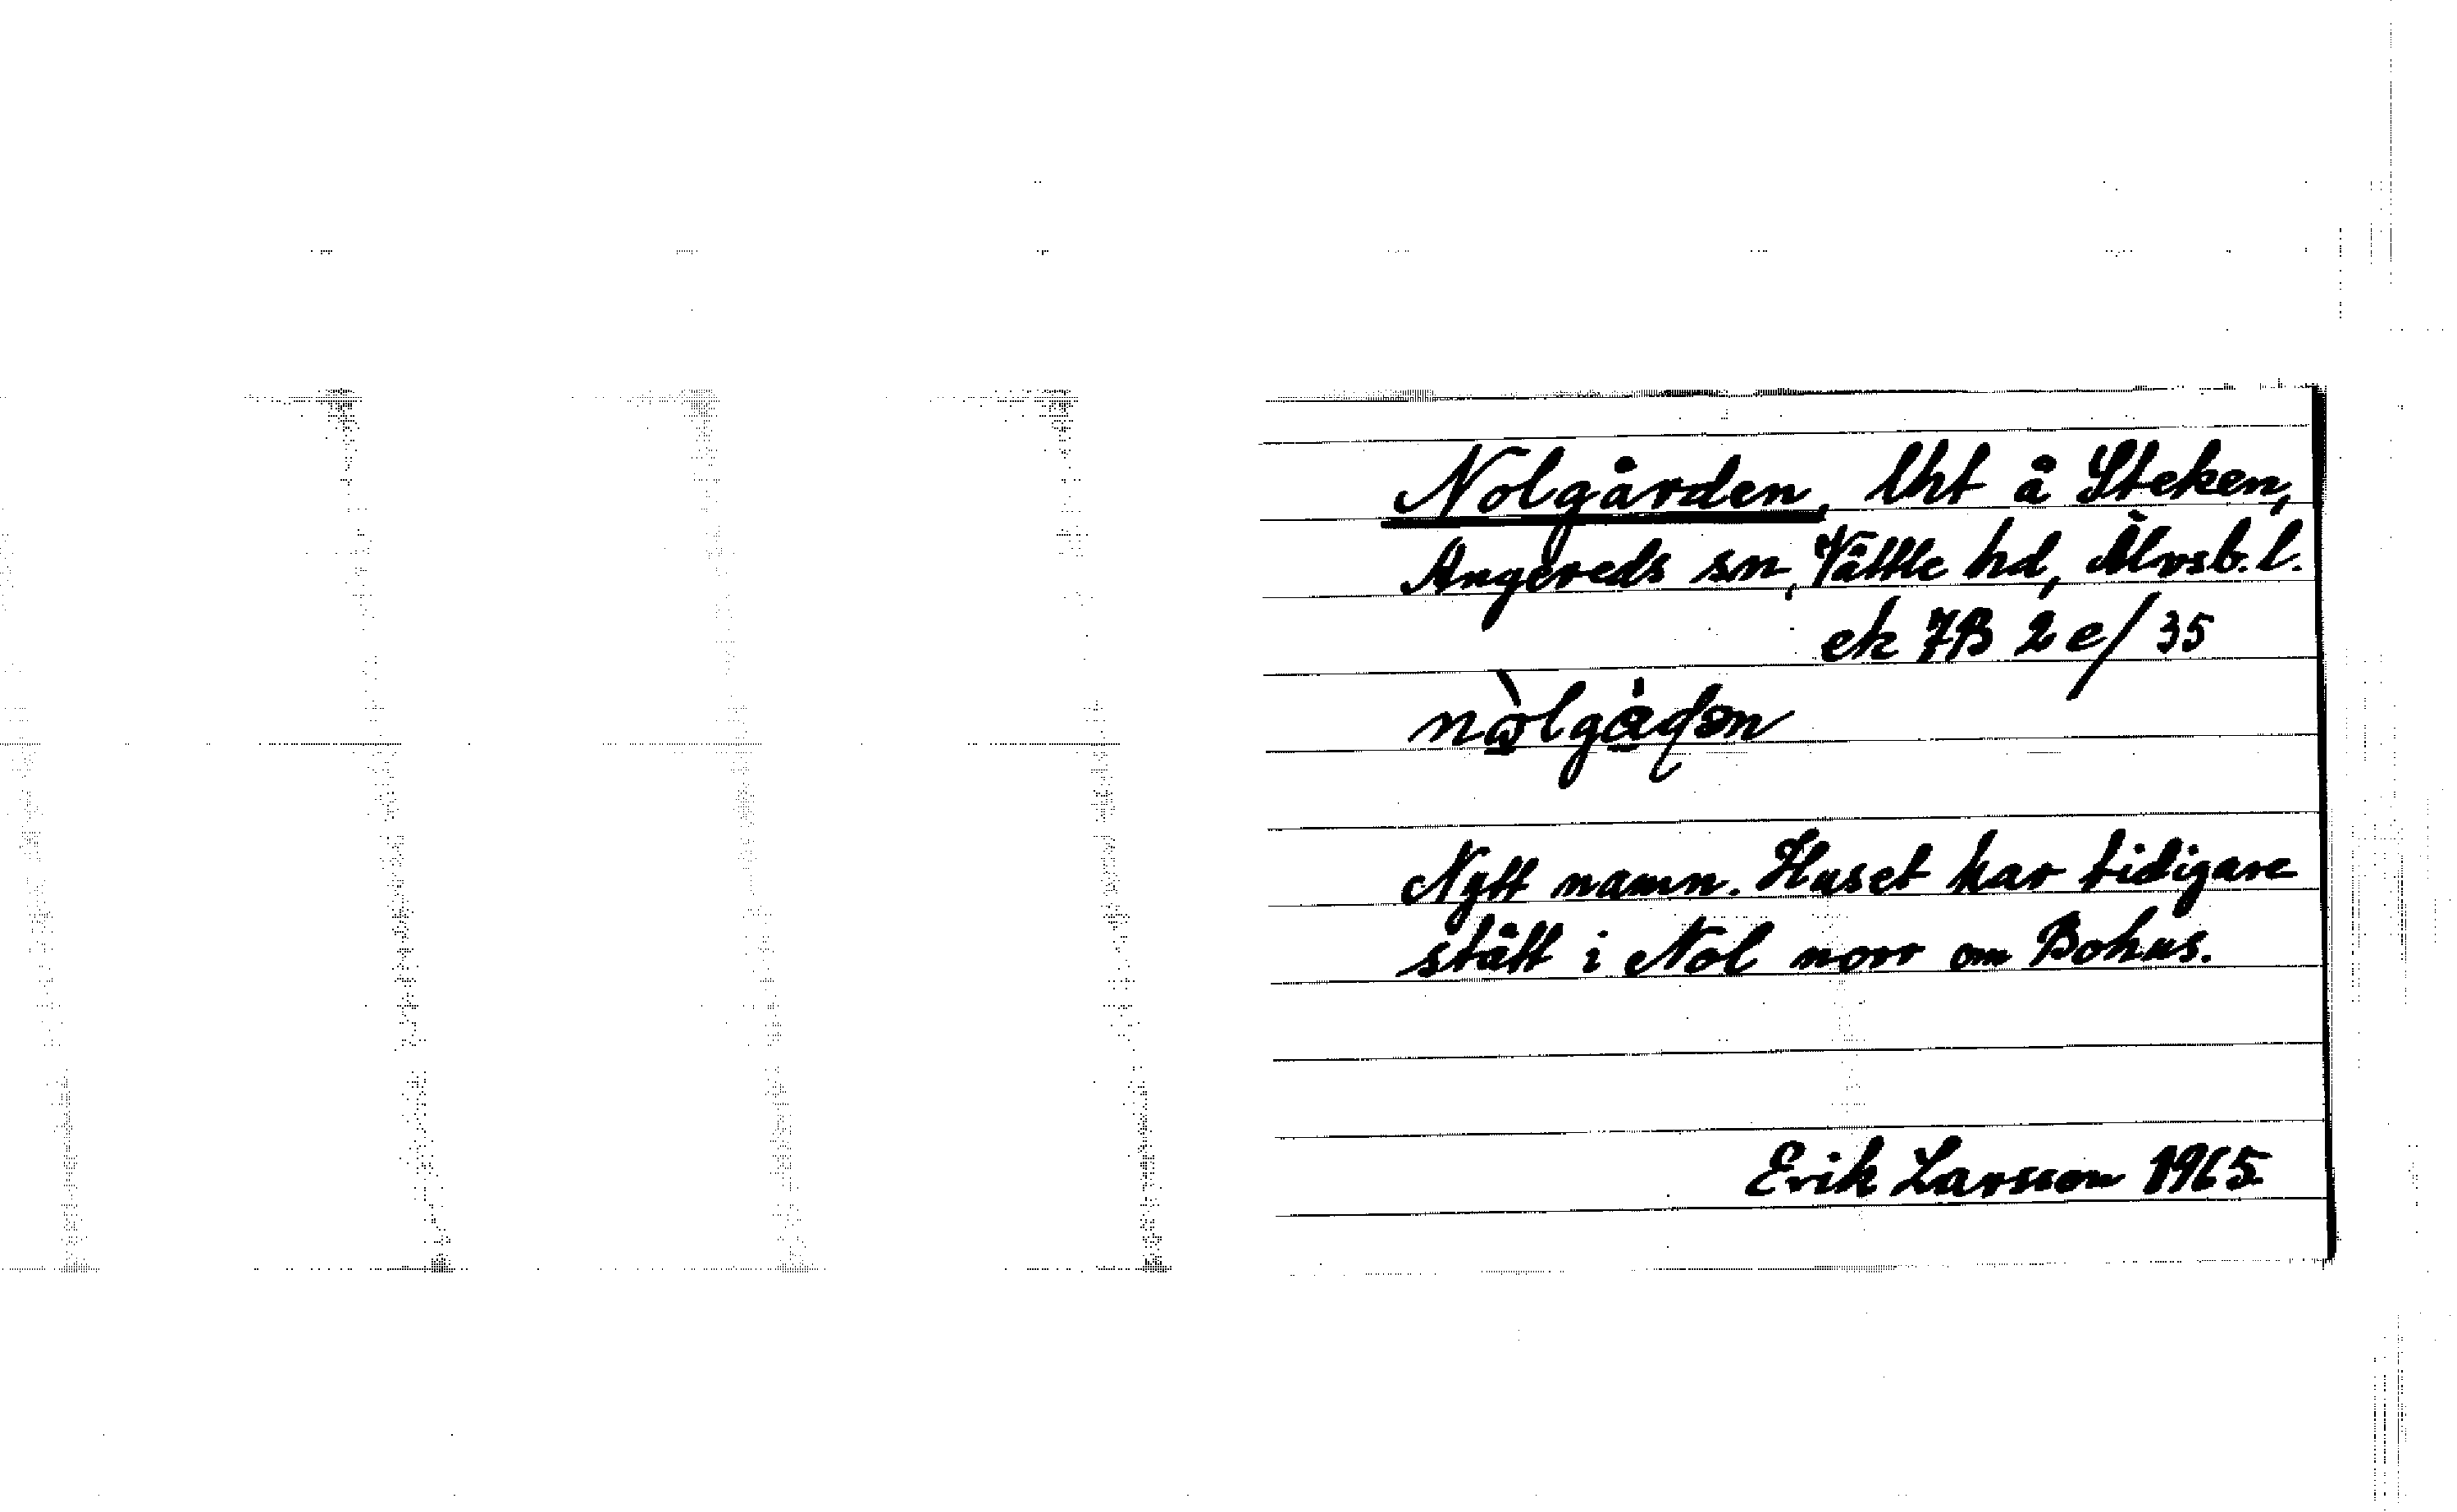 Nolgården, lht å Steken,
Angereds sn, Vättle hd, Älvsb. l.
ek 7B 2e/35
Nytt namn. Huset har tidigare
stått i Nol norr om Bohus.
Erik Larsson 1965.